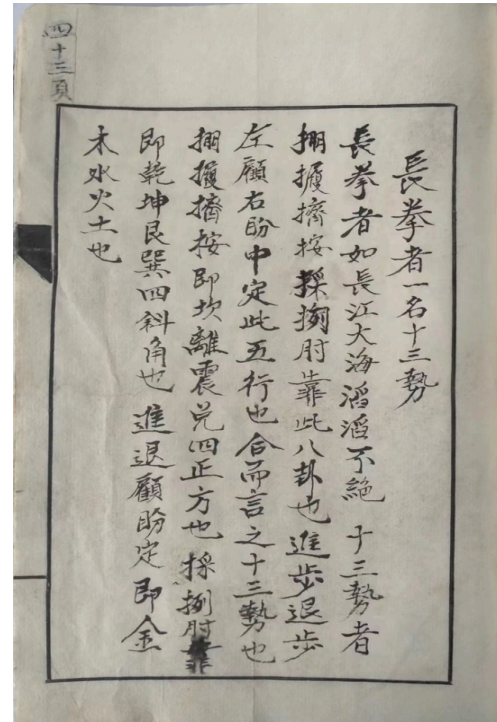 四十三頁
長拳者一名十三勢
長拳者如長江大海滔滔不絶 十三勢者
掤擾擠按採挒肘靠此八卦也進步退步
左顧右盼中定此五行也合而言之十三勢也
掤擾擠按即坎離震兌四正方也 採挒肘靠
即乾坤艮巽四斜角也 進退顧盼定 即金
木水火土也